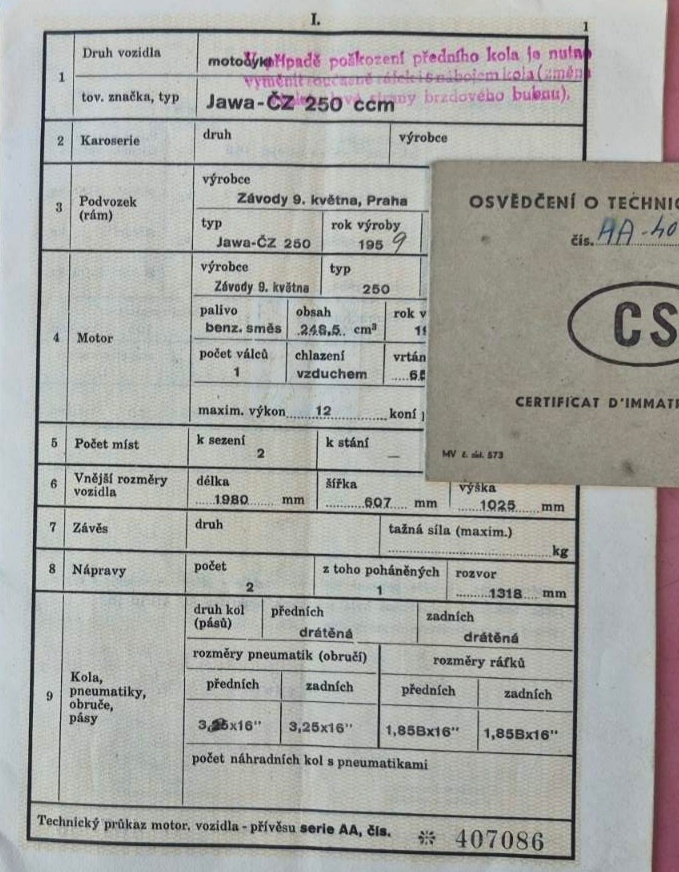 I.
1
1 Druh vozidla motocykl
V případě poškození předního kola je nutno
vyměnit současně ráfek i s nábojem kola (změna
brzdového bubnu).
tov. značka, typ Jawa-ČZ 250 ccm
2 Karoserie druh výrobce
3 Podvozek (rám) výrobce
Závody 9. května, Praha
typ rok výroby
Jawa-ČZ 250 1959
4 Motor výrobce typ
Závody 9. května 250
palivo obsah rok v
benz. směs 248,5 cm³ 19
počet válců chlazení vrtán
1 vzduchem 65
maxim. výkon 12 koní
5 Počet míst k sezení k stání
2 —
6 Vnější rozměry vozidla délka šířka výška
1980 mm 607 mm 1025 mm
7 Závěs druh tažná síla (maxim.)
kg
8 Nápravy počet z toho poháněných rozvor
2 1 1318 mm
9 Kola, pneumatiky, obruče, pásy
druh kol (pásů) předních zadních
drátěná drátěná
rozměry pneumatik (obručí) rozměry ráfků
předních zadních předních zadních
3,25x16" 3,25x16" 1,85Bx16" 1,85Bx16"
počet náhradních kol s pneumatikami
Technický průkaz motor. vozidla - přívěsu serie AA, čís. 407086
OSVĚDČENÍ O TECHNIC
čís. AA-40
CS
CERTIFICAT D'IMMATR
MV č. skl. 573